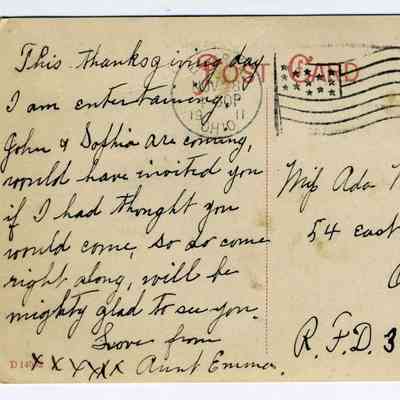 This thanksgiving day
I am entertaining,
John & Sophia are coming,
would have invited you
if I had thought you
would come, so do come
right along, will be
mighty glad to see you.
Love from
xxxxxx Aunt Emma.
POST CARD
NOV 28
30P
19 11
OHIO
Miss Ada
54 East
R.F.D. 3